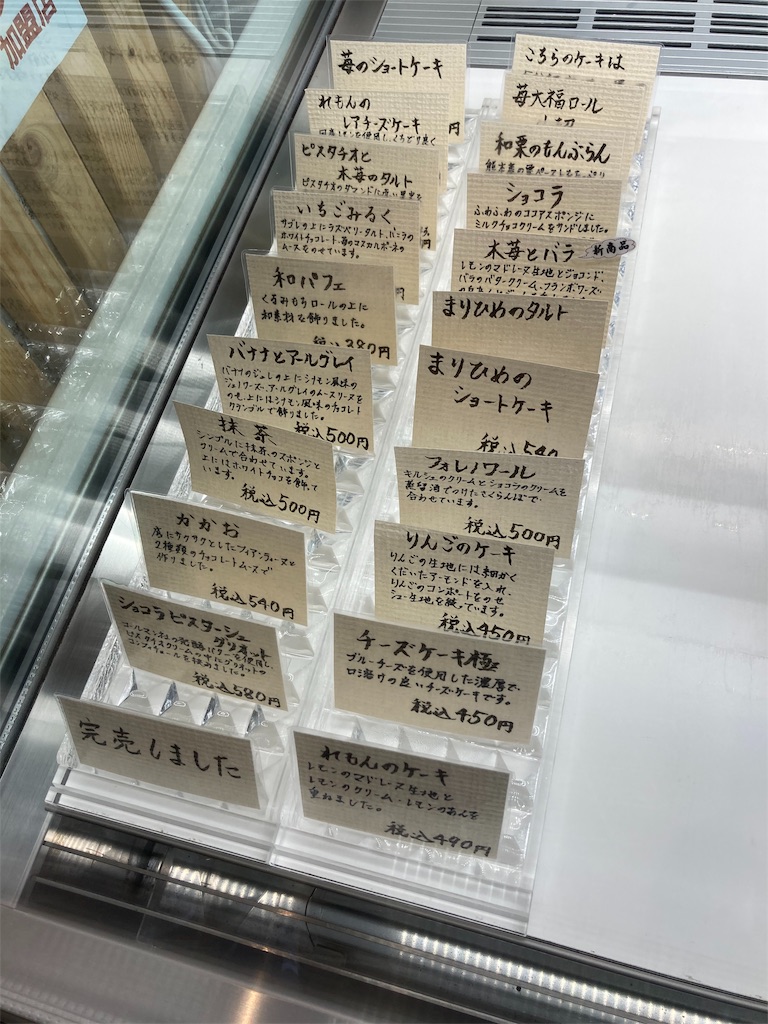 加盟店
苺のショートケーキ
れもんの
レアチーズケーキ
円
ピスタチオと
木苺のタルト
いちごみるく
サブレの上にラズベリータルト、バニラの
ホワイトチョコレート、苺のマスカルポーネの
ムースをのせています。
円
和パフェ
くるみもちロールの上に
和素材を飾りました。
税込380円
バナナとアールグレイ
バナナのジュレの上にシナモン風味の
ジョノワーズ、アールグレイのムースリーヌを
のせ、上にはシナモン風味のチョコレート
クランブルで飾りました。
税込500円
抹茶
シンプルに抹茶のスポンジと
クリームで合わせています。
上にはホワイトチョコを飾って
います。
税込500円
かかお
底にサクサクとしたフィアンティーヌと
2種類のチョコレートムースで
作りました。
税込540円
ショコラピスターシュ
グリオット
税込580円
完売しました
こちらのケーキは
苺大福ロール
和栗のもんぶらん
ショコラ
ふわふわのココアスポンジに
ミルクチョコクリームをサンドしました。
木苺とバラ
新商品
レモンのマドレーヌ生地とジョコンド、
バラのバタークリーム、フランボワーズの
まりひめのタルト
まりひめの
ショートケーキ
税込540
フォレノワール
キルシュのクリームとショコラのクリームを
蒸留酒でつけたさくらんぼで、
合わせています。
税込500円
りんごのケーキ
りんごの生地には細かく
くだいたアーモンドを入れ、
りんごのコンポートをのせ
シュー生地を絞っています。
税込450円
チーズケーキ極
ブルーチーズを使用した濃厚で、
口溶けの良いチーズケーキです。
税込450円
れもんのケーキ
レモンのマドレーヌ生地と
レモンのクリーム・レモンのあんを
重ねました。
税込490円